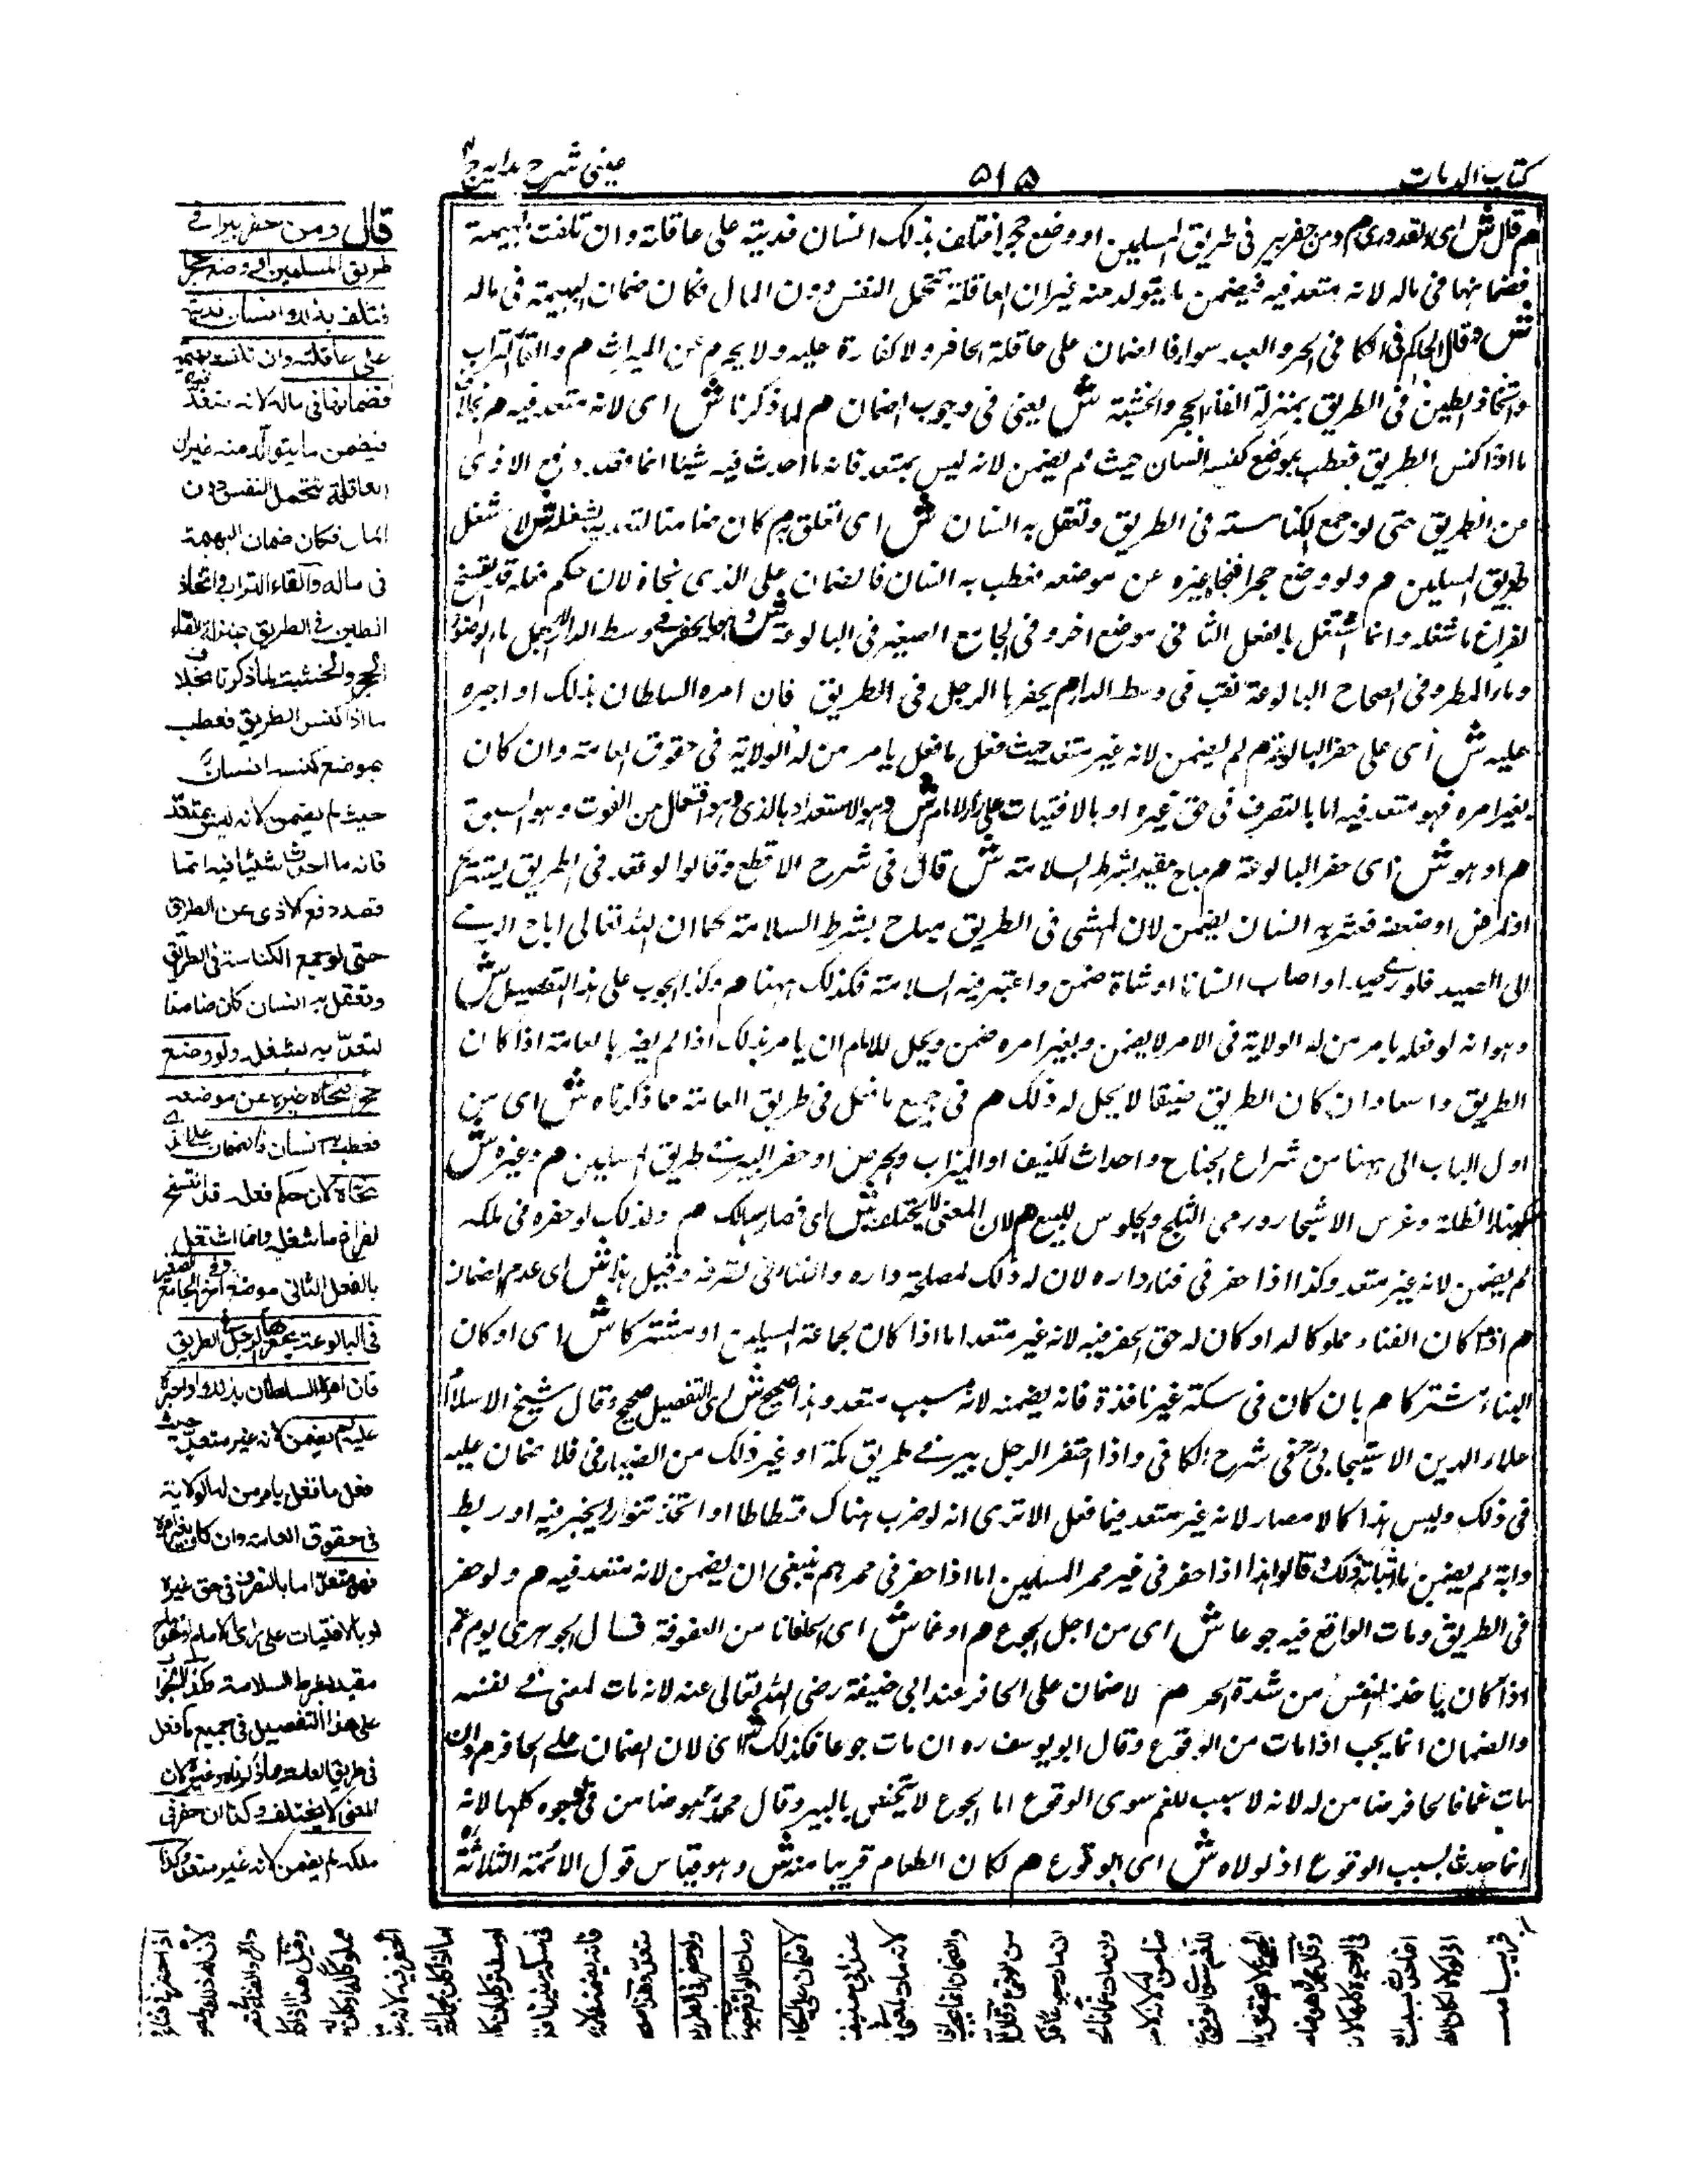 كتاب الديات
۵۱۵
عينى شرح هدايه ج ۴
م قال ش اى القدورى م ومن حفر بير فى طريق المسلمين او وضع حجرا فتلف بذلك انسان فديته على عاقلته وان تلفت بهيمة
فضمانها فى ماله لانه متعد فيه فيضمن ما يتولد منه غيران العاقلة تتحمل النفس دون المال فكان ضمان البهيمة فى ماله
ش وقال الحاكم فى الكافى الحجر والعبد سوا فالضمان على عاقلة الحافر ولا كفارة عليه ولا يحرم عن الميراث م والقاء التراب
واتخاذ الطين فى الطريق بمنزلة القاء الحجر والخشبة ش يعنى فى وجوب الضمان م لما ذكرنا ش اى لانه متعد فيه م بخلاف
ما اذا كنس الطريق فعطب بموضع كنسه انسان حيث لم يضمن لانه ليس بمتعد فانه ما احدث فيه شيئا انما قصد دفع الاذى
عن الطريق حتى لو جمع الكناسته فى الطريق وتعقل به انسان ش اى تعلق به م كان ضامنا لتعديه بشغله ش لانه شغل
طريق المسلمين م ولو وضع حجرا فنحاه غيره عن موضعه فعطب به انسان فالضمان على الذى نحاه لان حكم فعله قد انفسخ
لفراغ ما شغله وانما اشتغل بالفعل الثانى موضع اخر وفى الجامع الصغير فى البالوعة ش وهو ما يحفر فى وسط الدار لاجل ماء الوضوء
وماء المطر وفى الصحاح البالوعة ثقب فى وسط الدار م يحفرها الرجل فى الطريق فان امره السلطان بذلك او اجبره
عليه ش اى على حفر البالوعة م لم يضمن لانه غير متعد حيث فعل ما فعل بامر من له الولاية فى حقوق العامة وان كان
بغير امره فهو متعد فيه اما بالتصرف فى حق غيره او بالافتيات على راى الامام ش وهو الاستعداد بالذى وهو افتعال من الفوت وهو السبق
م او هو ش اى حفر البالوعة م مباح مقيد بشرط السلامة ش قال فى شرح الاقطع وقالوا لو قعد فى الطريق يستريح
او لمرض او ضعف فعثر به انسان يضمن لان المشى فى الطريق مباح بشرط السلامة كما ان الله تعالى اباح الرمى
الى الصيد فلو رمى صيدا واصاب انسانا او شاة ضمن واعتبر فيه السلامة فكذلك ههنا م وكذا الجواب على هذا التفصيل ش
وهو انه لو فعله بامر من له الولاية فى الامر لا يضمن وبغير امره ضمن ويحل للامام ان يامر بذلك اذا لم يضر بالعامة اذا كان
الطريق واسعا وان كان الطريق ضيقا لا يحل له ذلك م فى جميع ما فعل فى طريق العامة مما ذكرناه ش اى من
اول الباب الى ههنا من شراع الجناح واحداث الكنيف او الميزاب والجرصن او حفر البير فى طريق المسلمين م وغيره ش
كبناء الظلة وغرس الاشجار ورمى الثلج والجلوس للبيع م لان المعنى لا يختلف ش اى فصار هنالك م وكذلك لو حفره فى ملكه
لم يضمن لانه غير متعد وكذا اذا حفر فى فناء داره لان له ذلك لمصلحة داره والفناء فى تصرفه وقيل هذا ش اى عدم الضمان
م اذا كان الفناء مملوكا له او كان له حق الحفر فيه لانه غير متعد اما اذا كان لجماعة المسلمين او مشتركا ش اى او كان
البناء مشتركا م بان كان فى سكة غير نافذة فانه يضمنه لانه مسبب متعد وهذا صحيح ش اى التفصيل صحيح وقال شيخ الاسلام
علاء الدين الاسبيجابى فى شرح الكافى واذا احتفر الرجل بير فى طريق مكة او غير ذلك من الفيافى فلا ضمان عليه
فى ذلك وليس هذا كالامصار لانه غير متعد فيما فعل الا ترى انه لو ضرب هناك فسطاطا او اتخذ تنورا ليخبز فيه او ربط
دابة لم يضمن ما اثباته ذلك قالوا هذا اذا حفر فى غير ممر المسلمين اما اذا حفر فى ممرهم ينبغى ان يضمن لانه متعد فيه م ولو حفر
فى الطريق ومات الواقع فيه جوعا ش اى من اجل الجوع م او غما ش اى انخفانا من العفونة قال الجوهرى يوم غم
اذا كان ياخذ النفس من شدة الحر م لا ضمان على الحافر عند ابى حنيفة رضى الله تعالى عنه لانه مات لمعنى فى نفسه
والضمان انما يجب اذا مات من الوقوع وقال ابو يوسف ره ان مات جوعا فكذلك ش اى لان الضمان على الحافر م وان
مات غما فالحافر ضامن له لانه لا سبب للغم سوى الوقوع اما الجوع لا يختص بالبير وقال محمد هو ضامن فى الوجوه كلها لانه
انما حدث بسبب الوقوع اذ لولاه ش اى الوقوع م لكان الطعام قريبا منه ش وهو قياس قول الائمة الثلاثة
قال ومن حفر بيرا فى
طريق المسلمين او وضع حجرا
فتلف بذلك انسان فديته
على عاقلته وان تلفت بهيمة
فضمانها فى ماله لانه متعد فيه
فيضمن ما يتولد منه غيران
العاقلة تتحمل النفس دون
المال فكان ضمان البهيمة
فى ماله والقاء التراب واتخاذ
الطين فى الطريق بمنزلة القاء
الحجر والخشبة لما ذكرنا بخلاف
ما اذا كنس الطريق فعطب
بموضع كنسه انسان
حيث لم يضمن لانه ليس بمتعد
فانه ما احدث شيئا فيه انما
قصد دفع الاذى عن الطريق
حتى لو جمع الكناسة فى الطريق
وتعقل به انسان كان ضامنا
لتعديه بشغله ولو وضع
حجرا فنحاه غيره عن موضعه
فعطب به انسان فالضمان على الذى
نحاه لان حكم فعله قد انفسخ
لفراغ ما شغله وانما اشتغل
بالفعل الثانى موضع اخر وفى الجامع الصغير
فى البالوعة يحفرها الرجل فى الطريق
فان امره السلطان بذلك او اجبره
عليه لم يضمن لانه غير متعد حيث
فعل ما فعل بامر من له الولاية
فى حقوق العامة وان كان بغير امره
فهو متعد اما بالتصرف فى حق غيره
او بالافتيات على راى الامام او هو مباح
مقيد بشرط السلامة وكذا الجواب
على هذا التفصيل فى جميع ما فعل
فى طريق العامة مما ذكرناه وغيره لان
المعنى لا يختلف وكذا ان حفر فى
ملكه لم يضمن لانه غير متعد وكذا
اذا حفر فى فناء
لان له ذلك لمصلحة
داره والفناء فى تصرفه
وقيل هذا اذا كان
مملوكا له او كان له
الحفر فيه لانه غير
اما اذا كان لجماعة
او مشتركا بان كان
فى سكة غير نافذة
فانه يضمنه لانه
متعد وهذا صحيح
ولو حفر فى الطريق
ومات الواقع فيه جوعا
لا ضمان على الحافر
عند ابى حنيفة
لانه مات لمعنى فى
والضمان انما يجب اذا
من الوقوع وقال
ان مات جوعا فكذلك
وان مات غما فالحافر
ضامن له لانه لا سبب
للغم سوى الوقوع
الجوع لا يختص بالبير
وقال محمد هو ضامن
فى الوجوه كلها لانه
انما حدث بسبب
الوقوع اذ لولاه لكان الطعام
قريبا منه